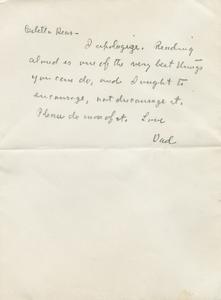 Dear -
I apologize. Reading
aloud is one of the very best things
you can do, and I ought to
encourage, not discourage it.
Please do more of it. Love
Dad